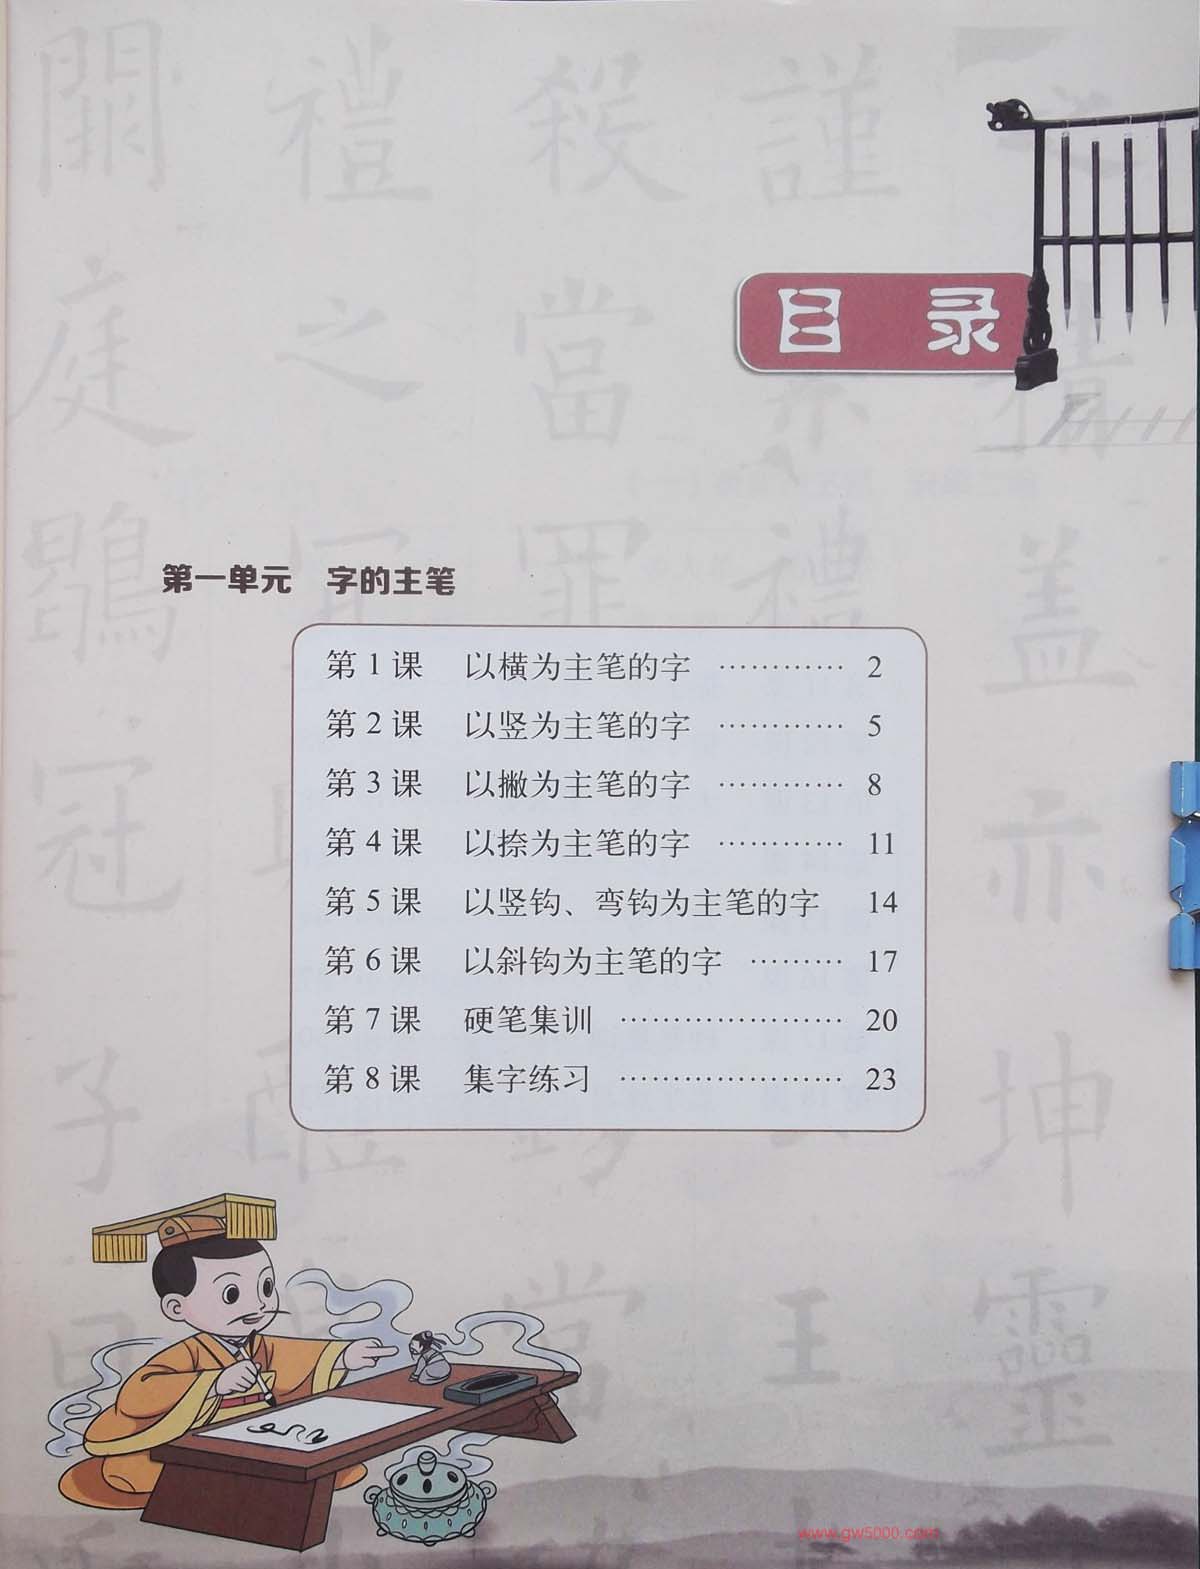 目 录
第一单元 字的主笔
第1课 以横为主笔的字 ………… 2
第2课 以竖为主笔的字 ………… 5
第3课 以撇为主笔的字 ………… 8
第4课 以捺为主笔的字 ………… 11
第5课 以竖钩、弯钩为主笔的字 14
第6课 以斜钩为主笔的字 ……… 17
第7课 硬笔集训 ………………… 20
第8课 集字练习 ………………… 23
www.gw5000.com